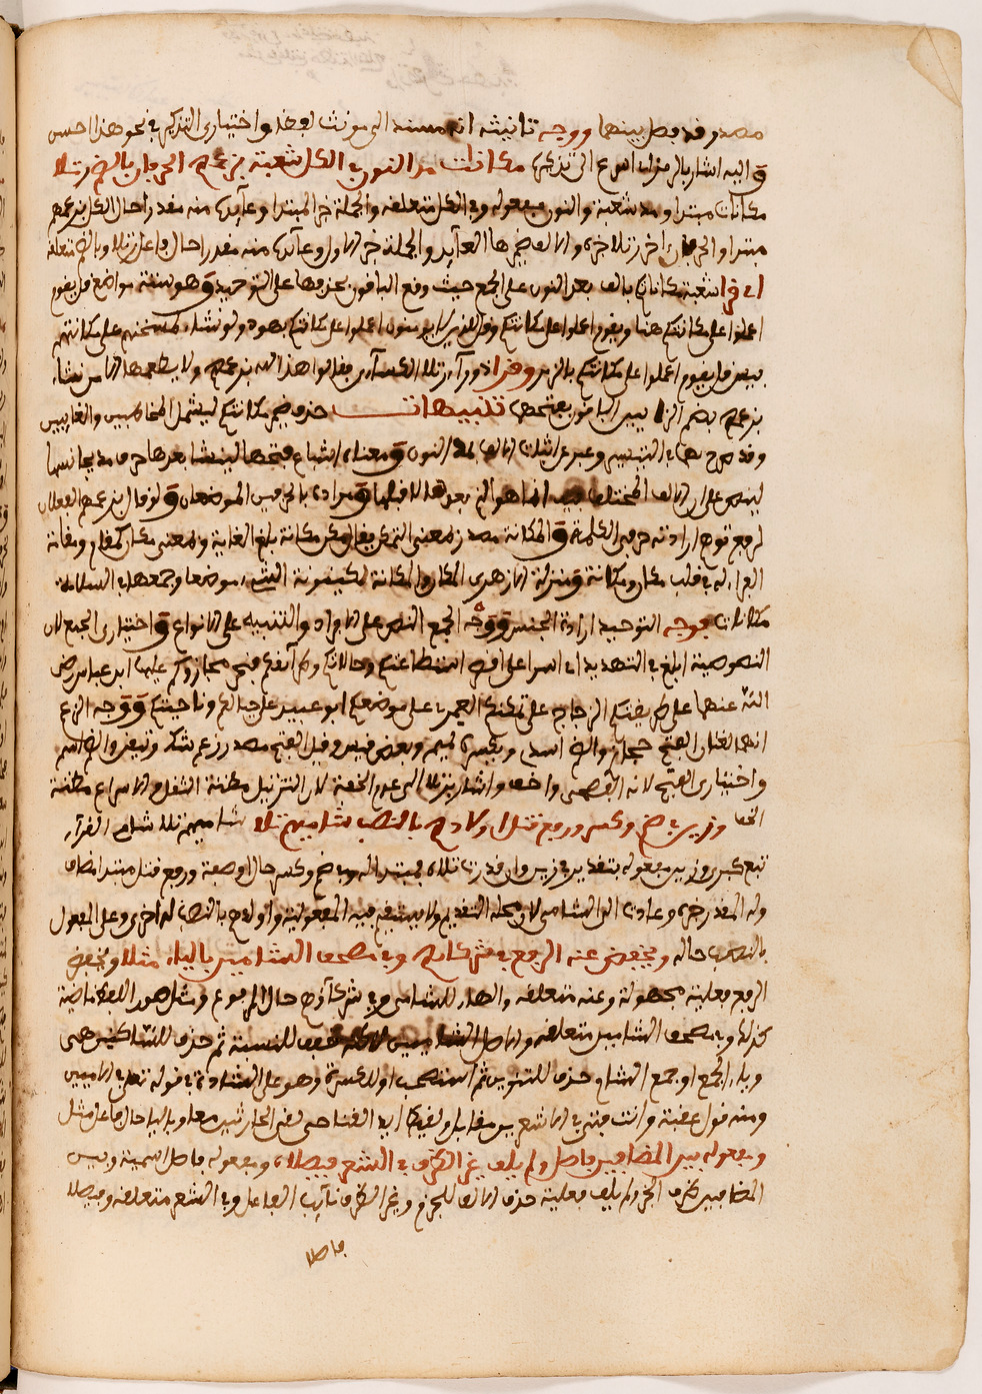 مصدر وقد فصل بينهما ووجه تانيثه انه مسند الى مونث لفظا واختياري التذكير في نحو هذا احسن
واليه اشار بالرمز
مكانات مد النون في الكل شعبة بزعمهم الحرفان بالضم رتلا
مكانات مبتدا ومد شعبة والنون مفعوله وفي الكل متعلقه والجملة خبر المبتدا وعايدها منه مقدرا حال الكل بزعمهم
مبتدا والحرفان اخر رتلا خبره والالف ضميرها العايد والجملة خبر الاول وعايدها منه مقدرا حال فاعل رتلا وبالضم متعلقه
اي قرا شعبة مكاناتكم بالف بعد النون على الجمع حيث وقع الباقون بحذفها على التوحيد وهو ستة مواضع قل يقوم
اعملوا على مكانتكم هنا ويقوم اعملوا على مكانتكم وقل للذين لا يومنون اعملوا على مكانتكم بهود ولو نشاء لمسخنهم على مكانتهم
بيس قل يقوم اعملوا على مكانتكم بالزمر وقرا ذو راء رتلا الكساءي فقالوا هذا لله بزعمهم ولا يطعمها الا من نشاء
بزعمهم بضم الزا يين الباقون بفتحهما تنبيهات حذف ضمير مكانتكم ليشمل المخاطبين والغايبين
وقد صرح بهما في التيسير وعبر عن اثبات الالف بمد النون ومعناه اشباع فتحها لينشا بعدها حرف مد يجانسها
لينص على ان الالف المختلف فيه انما هو الذي بعدها لا قبلها ومراده بالحرفين الموضعان ولو قال بزعمهم الفعلان
لرفع توهم ارادته حرفي الكلمة والمكانة مصدر بمعنى التمكن يقال مكن مكانة بلغ الغاية وبمعنى مكان كمقام ومقامة
الفراء له في قلبه مكان ومكانة ومنزلة الازهري المكان والمكانة لكينونة الشيء موضعا وجمعها في السلامة
مكانات فوجه التوحيد ارادة الجنس ووجه الجمع النص على الافراد والتنبيه على الانواع واختياري الجمع لان
النصوصية ابلغ في التهديد اي اسرا على اقصى استطاعتكم وحالاتكم ولم آتكم فنحن مجازوكم عليها ابن عباس رضي
الله عنهما على طريقتكم الزجاج على تمكنكم العمري على موضعكم ابو عبيد على حيالكم وناحيتكم ووجه الزعم
انهما لغتان الفتح حجاز والضم اسد وبكسره تميم وبعض قيس وقيل الفتح مصدر زعم شك وتيقن والضم اسم
واختياري الفتح لانه الفصحى واخف واشار بترتلا الى عدم الخفة لان الترتيل مظنة الثقل والاسراع مظنة
الخفا وزين في ضم وكسر ورفع قتل اولادهم بالنصب شاميهم تلا شاميهم تلا شامي القران
تبع كبير وزين مفعوله بتقدير في زين وان قدرت تلاه فمبتدا له وفي ضم وكسر حال او صفة ورفع قتل مبتدا مضاف
وله المقدر خبره وعايدها الى الشامي لان محله التقديم ولا يستقيم فيه المفعولية واولادهم بالنصب له اخرى وعلى المفعول
بالنصب حاله ويخفض عنه الرفع في شركاؤهم وفي مصحف الشامين بالياء مثلا ويخفض
الرفع فعلية مجهولة وعنه متعلقه والهاء للشامي وفي شركاؤهم حال المرفوع ومثل هو اللفظ ماضية
كذلك وفي مصحف الشامين متعلقه والاصل الشاميين للنسبة ثم حذف للساكنين هي
وياء الجمع او جمع الشام حذف للتنوين ثم استصحب او للكسرة وهو على الشاذة في قوله تعلى الاميين
ومنه قول عقبة وانت فتى في الاشعرين مقابل
ومفعوله بين المضافين فاصل ولم يلف غير الظرف في الشعر فيصلا ومفعوله فاصل اسمية وبين
المضافين ظرف الخبر ولم يلف فعلية حذف الالف للجزم وغير الظرف نايب الفاعل وفي الشعر متعلقه وفيصلا
فاصلا